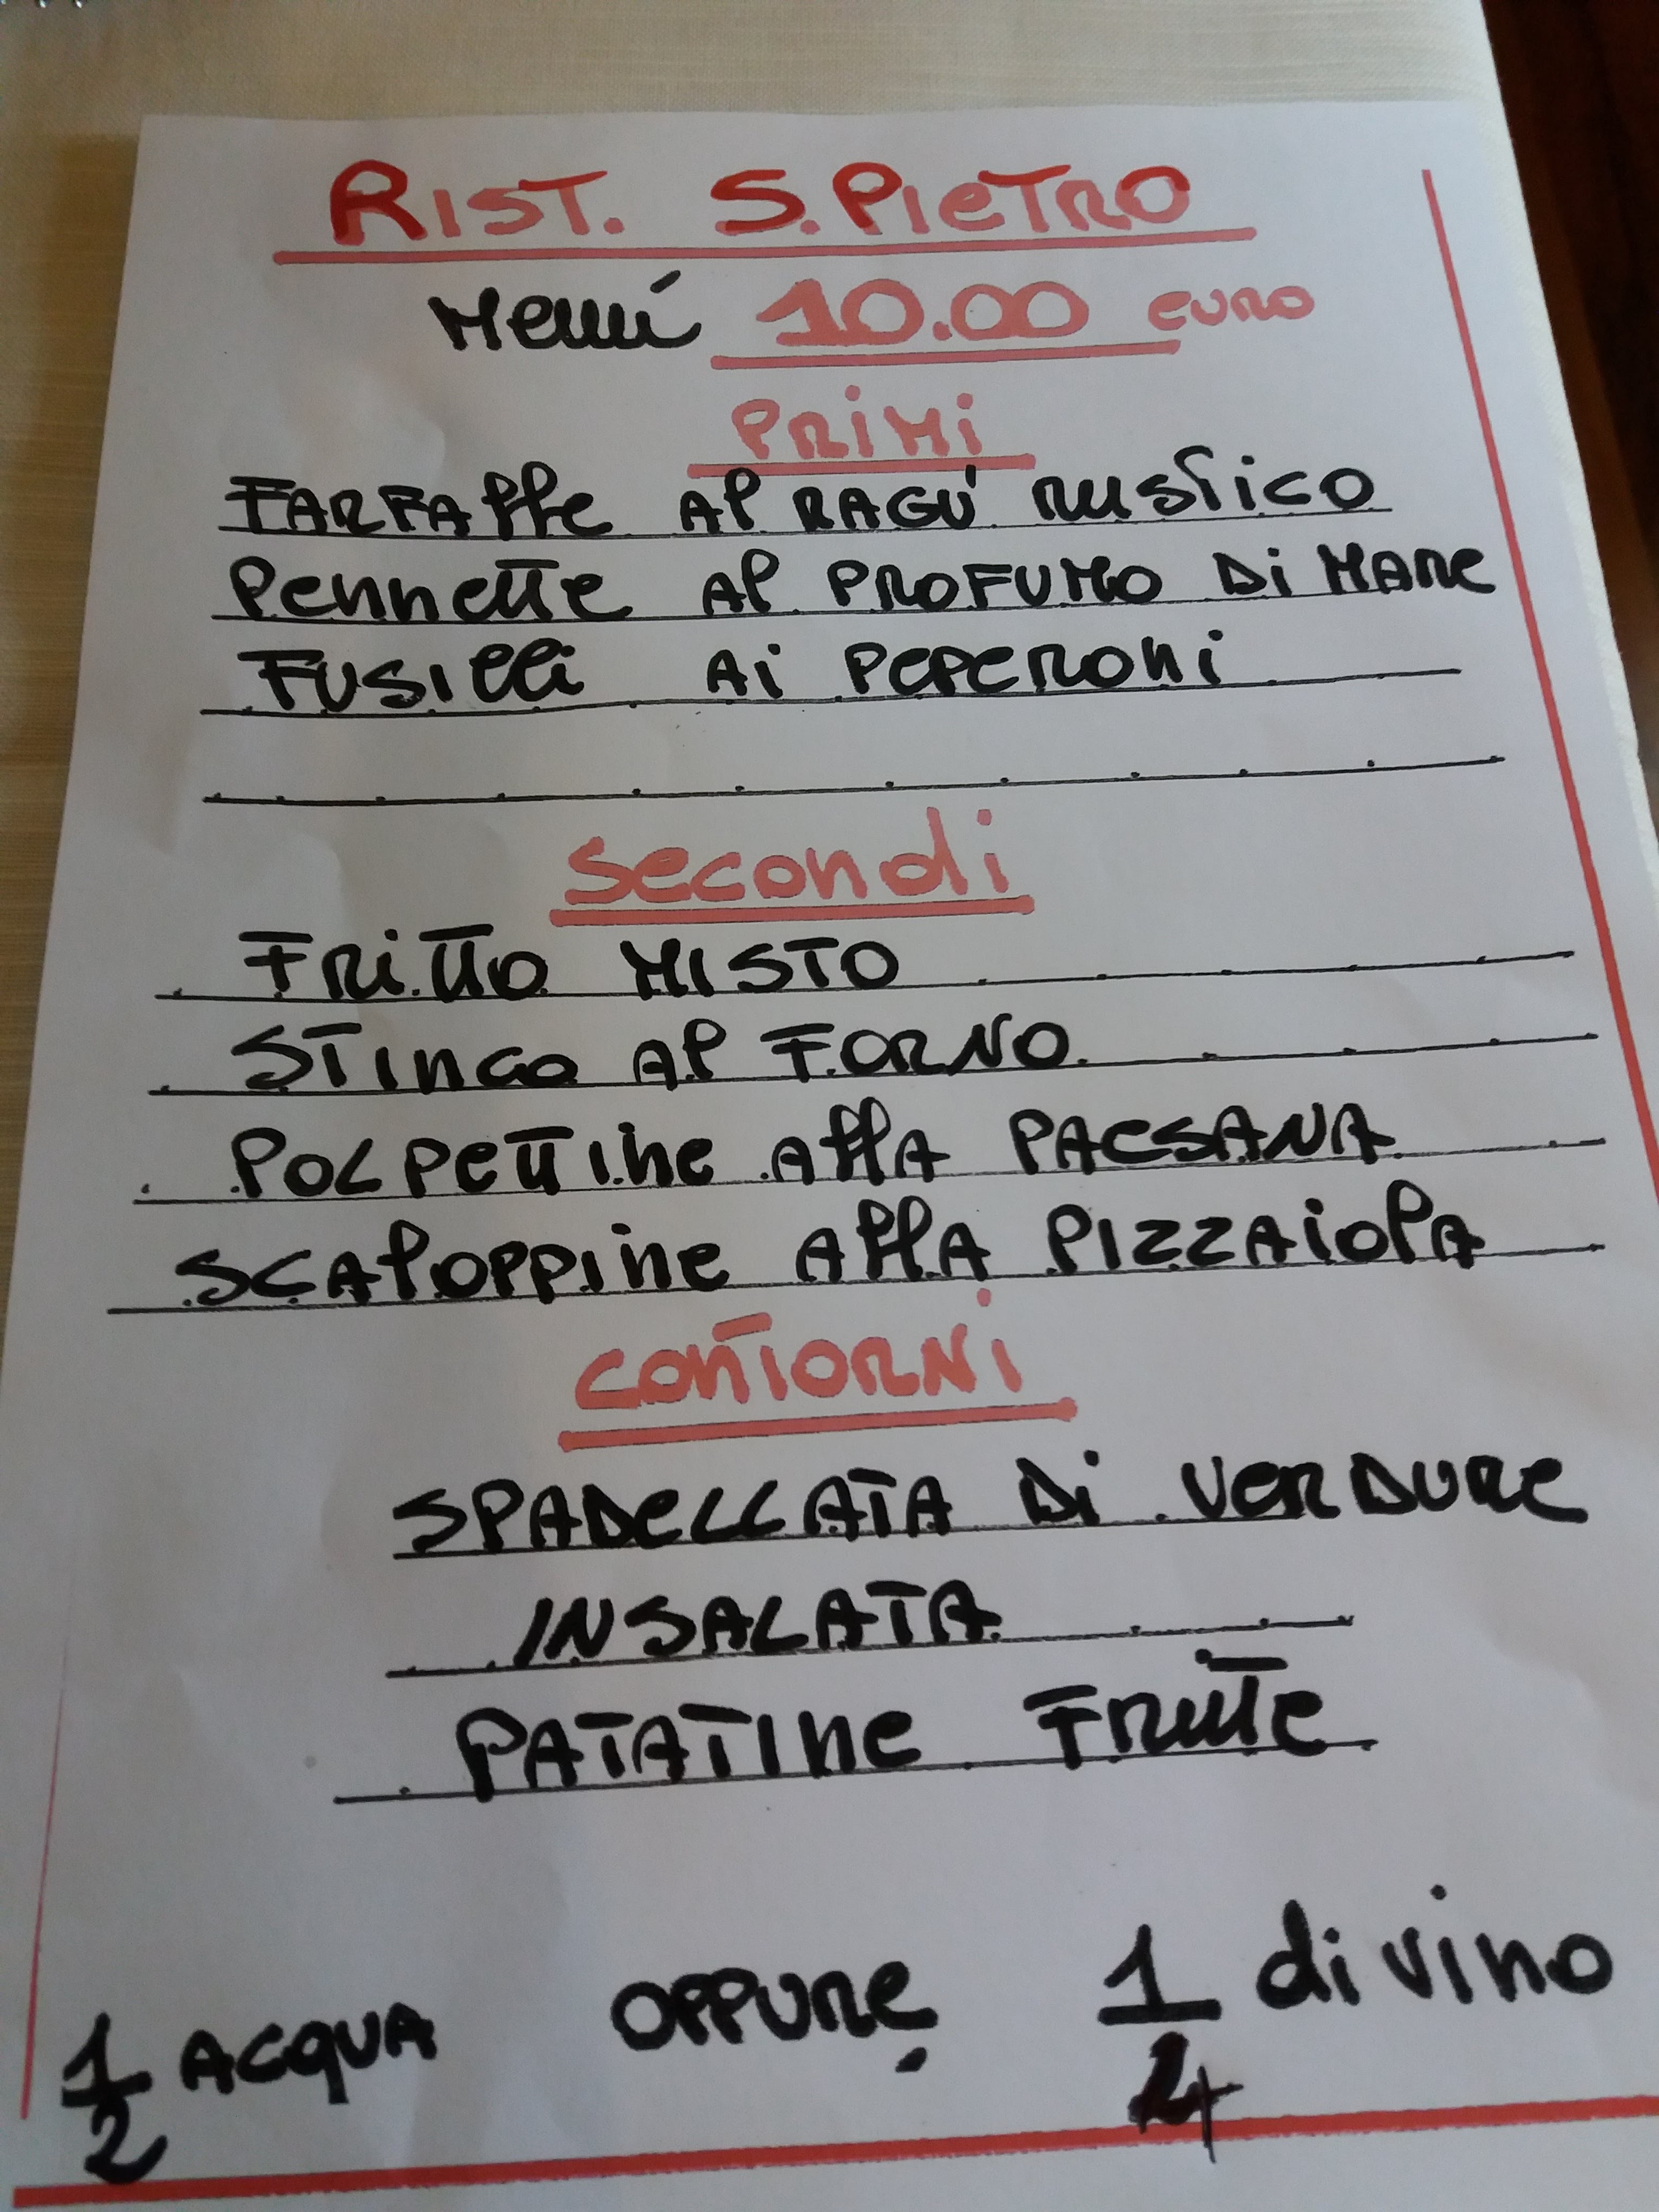 RIST. S.PIETRO
Menú 10.00 EURO
PRIMI
FARFAlle Al RAGÚ RUSTICO
Pennette Al PROFUMO Di MARE
FUSIlli Ai PEPERONi
Secondi
FRiTTO MISTO
STINCO Al FORNO
POLPETTINE AllA PAESANA
SCAlOPPINE AllA PIZZAIOlA
CONTORNI
SPADELLATA Di VERDURE
INSALATA
PATATINE FRITTE
1/2 ACQUA OPPURE 1/4 di vino